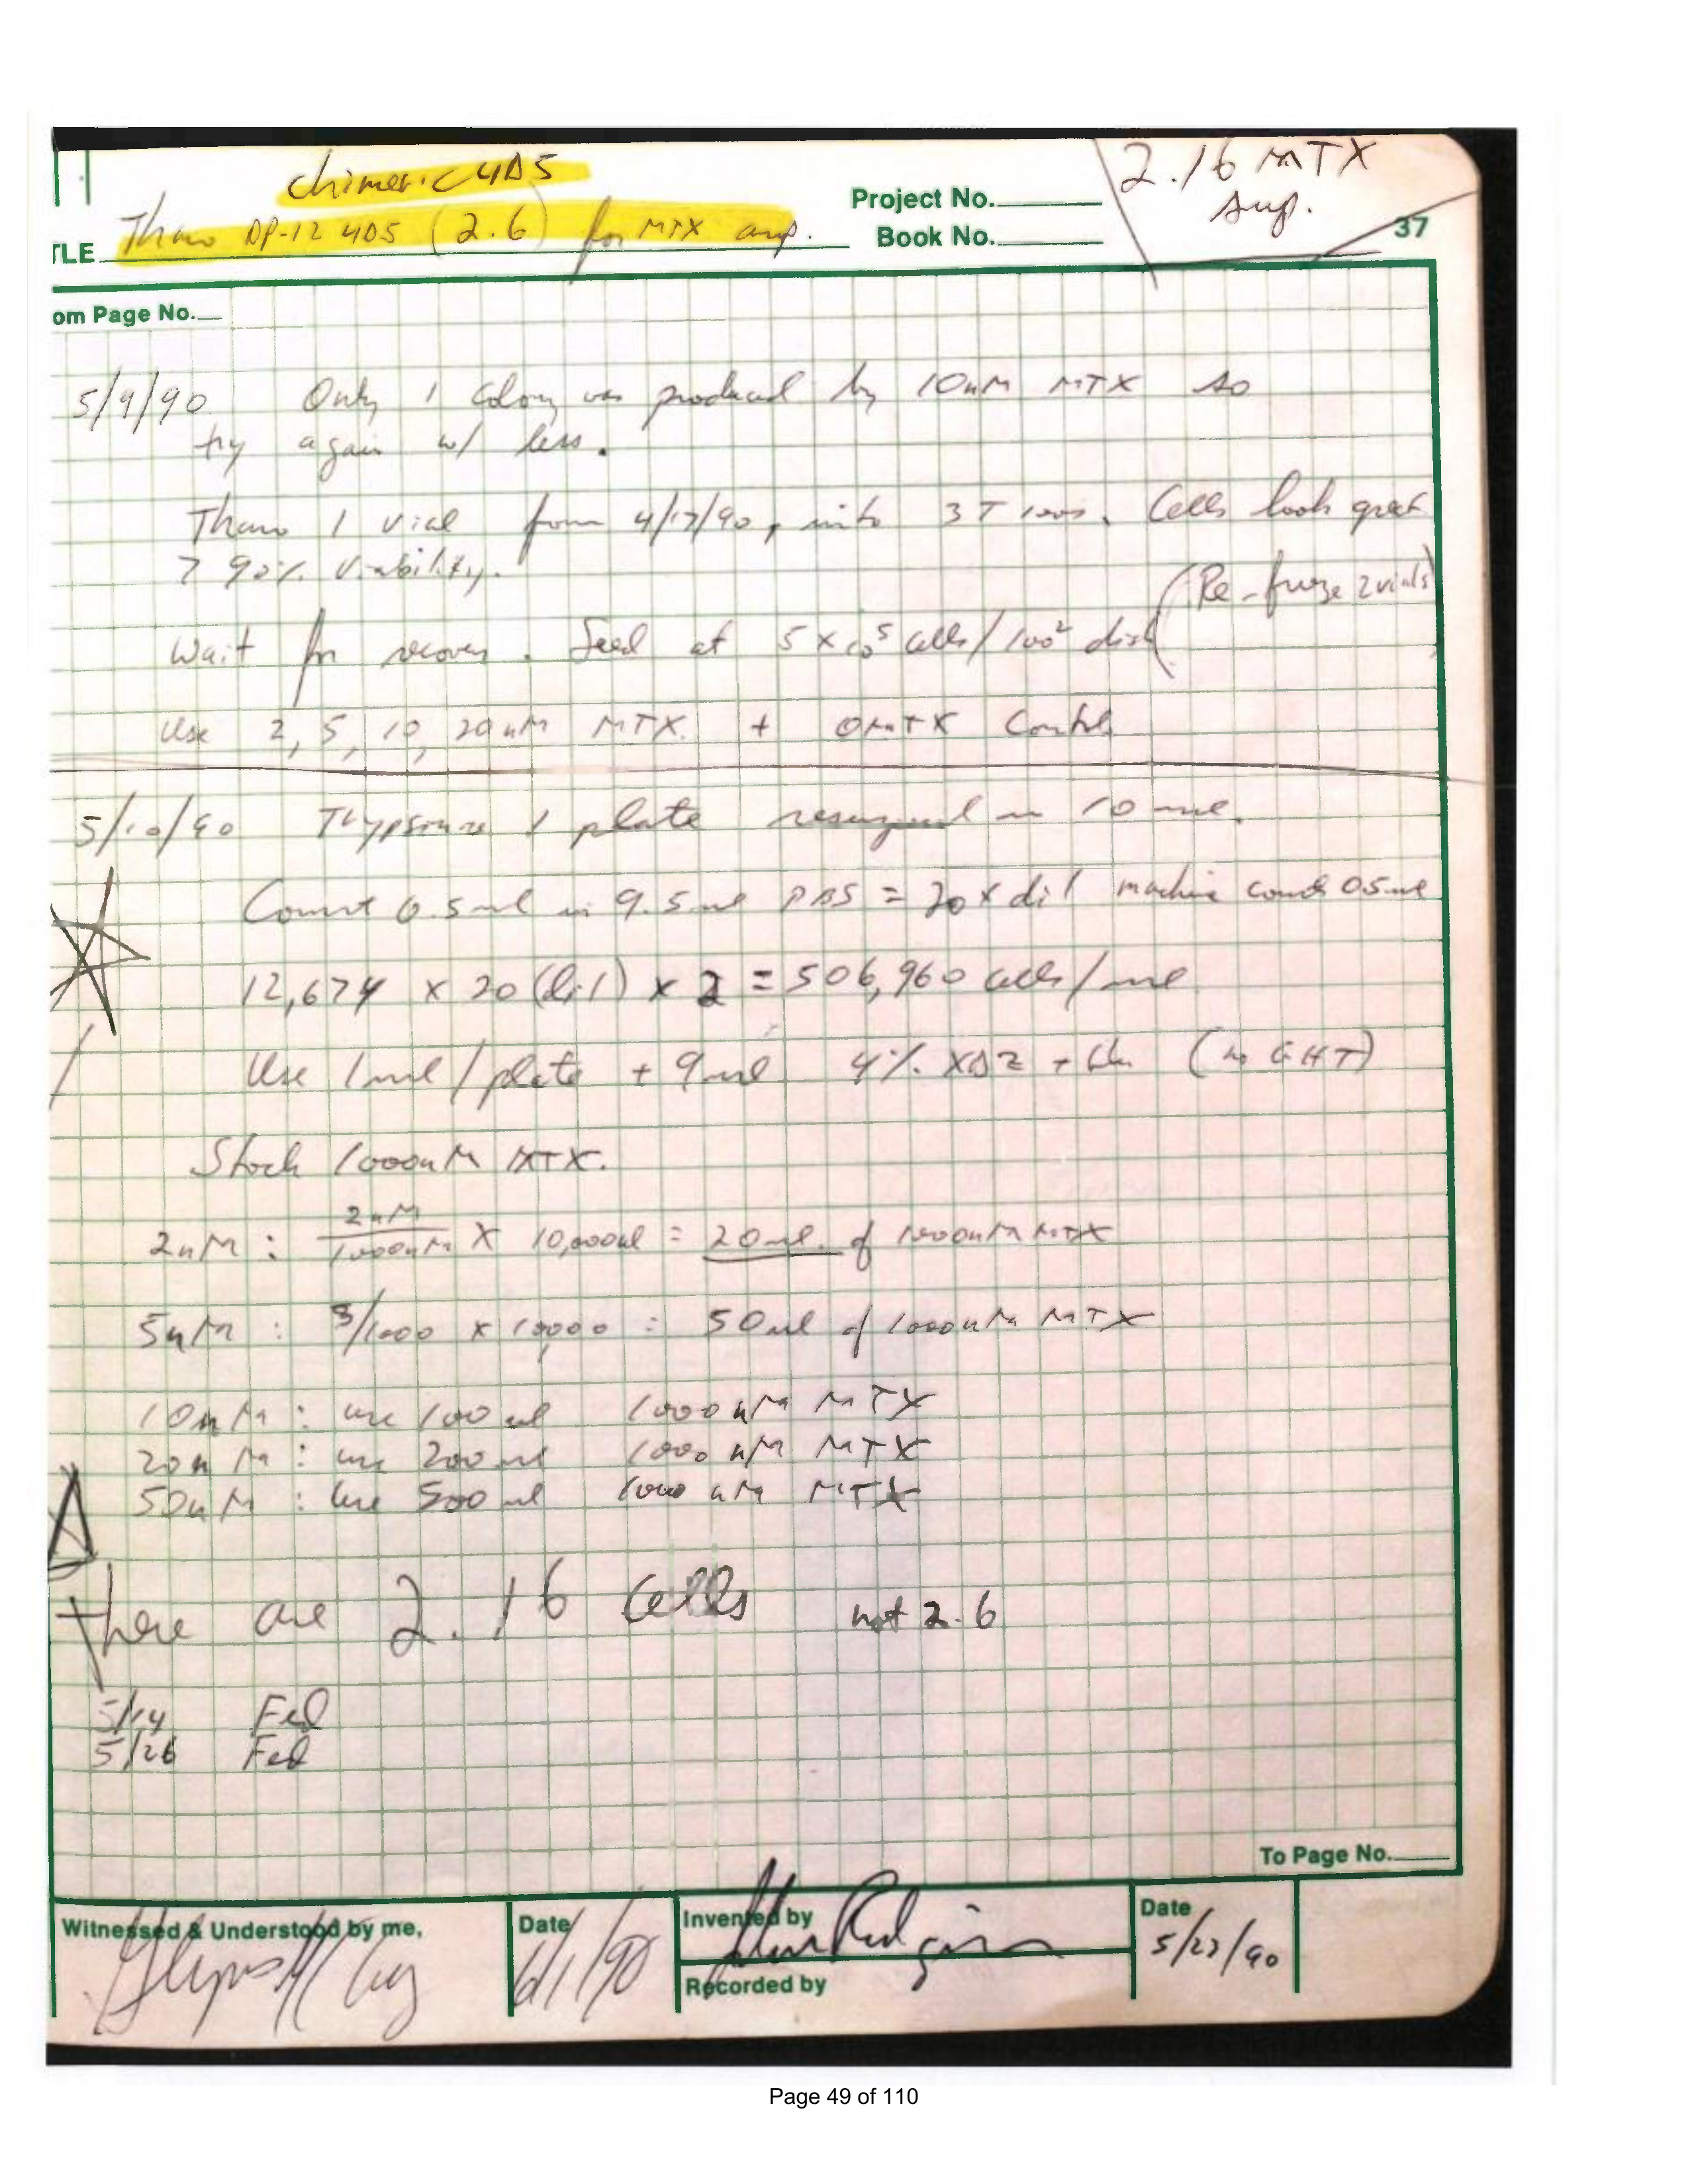 chimeric 4D5
2.16 MTX
amp.
Project No.
TLE Thaw DP-12 4D5 (2.6) for MTX amp.
Book No.
37
om Page No.
5/9/90 Only 1 colony was produced by 10nM MTX so
try again w/ less.
Thaw 1 vial from 4/17/90, into 3 T 100s. Cells look great
> 90% viability.
(Re-freeze 2 vials)
Wait for recovery. Seed at 5 x 10⁵ cells/100² dish
Use 2, 5, 10, 20 nM MTX. + 0 MTX Control
5/10/90 Trypsinize 1 plate resuspend in 10 ml.
Count 0.5 ml in 9.5 ml PBS = 20 x dil machine counts 0.5 ml
12,674 x 20 (dil) x 2 = 506,960 cells/ml
Use 1 ml/plate + 9 ml 4% (no GHT)
Stock 1000nM MTX.
2nM : 2nM/1000nM x 10,000ul = 20ul of 1000nM MTX
5nM : 5/1000 x 10,000 = 50ul of 1000nM MTX
10nM : use 100ul 1000 nM MTX
20nM : use 200ul 1000 nM MTX
50nM : use 500ul 1000 nM MTX
these are 2.16 cells not 2.6
5/14 Fed
5/26 Fed
To Page No.
Witnessed & Understood by me,
Date
6/1/90
Invented by
Recorded by
Date
5/27/90
Page 49 of 110